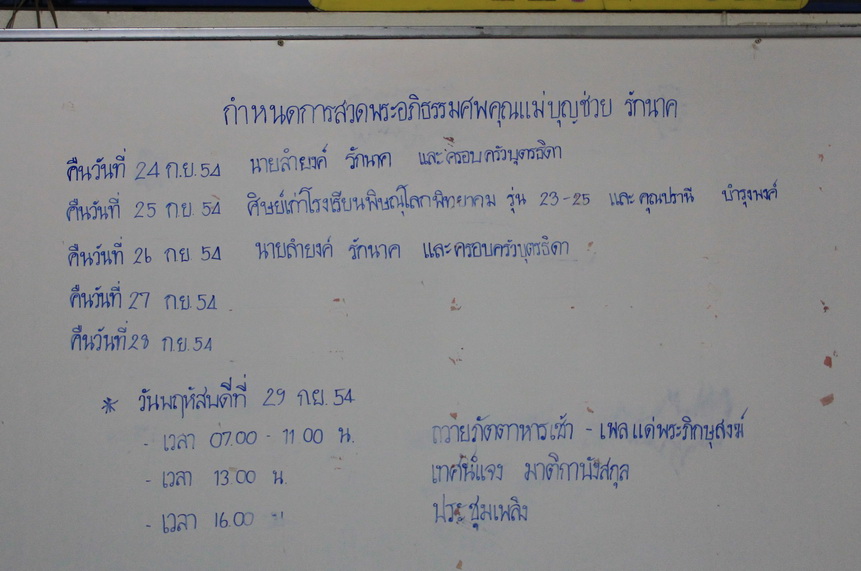 กำหนดการสวดพระอภิธรรมศพคุณแม่บุญช่วย รักนาค
คืนวันที่ 24 ก.ย. 54 นายลำยงค์ รักนาค และครอบครัวบุตรธิดา
คืนวันที่ 25 กย. 54 ศิษย์เก่าโรงเรียนพิษณุโลกพิทยาคม รุ่น 23-25 และ คุณปรานี บำรุงพงค์
คืนวันที่ 26 กย 54 นายลำยงค์ รักนาค และครอบครัวบุตรธิดา
คืนวันที่ 27 ก.ย. 54
คืนวันที่ 28 ก.ย. 54
* วันพฤหัสบดีที่ 29 กย. 54
- เวลา 07.00 - 11 00 น. ถวายภัตตาหารเช้า - เพลแด่พระภิกษุสงฆ์
- เวลา 13.00 น. เทศน์แจง มาติกาบังสกุล
- เวลา 16.00 น ประชุมเพลิง